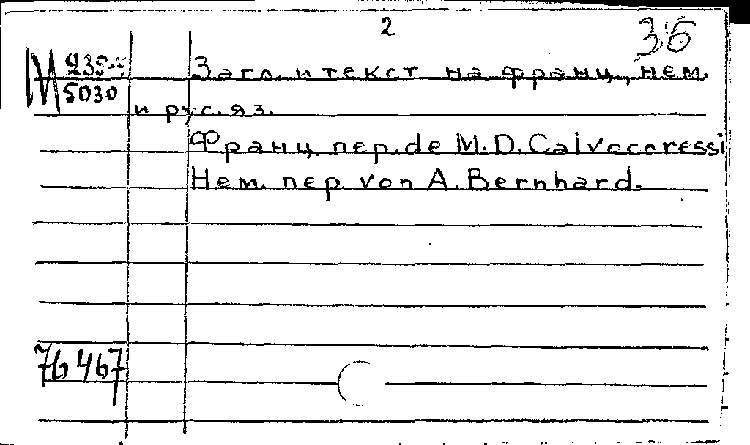 2
36
М 9394
5030
Загл. и текст на франц., нем.
и рус. яз.
Франц. пер. de M. D. Calvocoressi
Нем. пер. von A. Bernhard.
76467